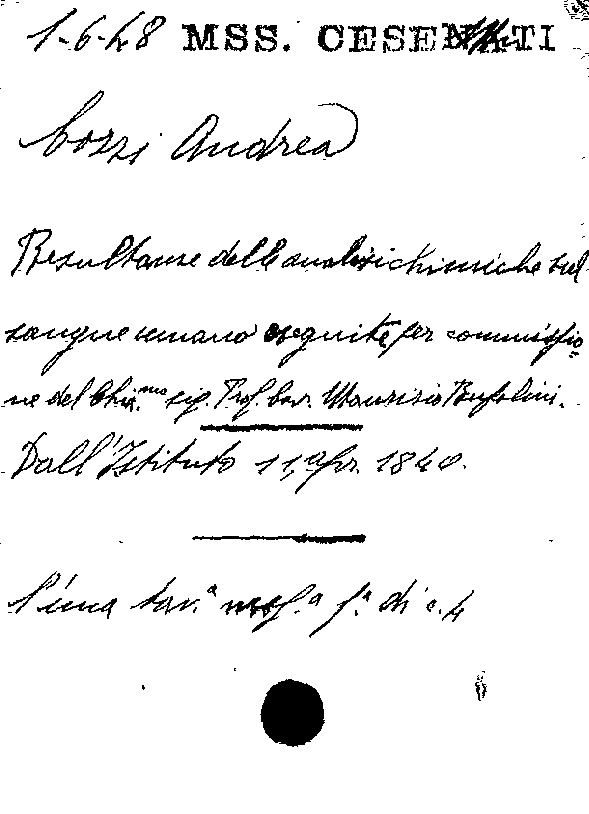 1-6-48 MSS. CESENATI
Cozzi Andrea
Resultanze delle analisi chimiche sul
sangue umano eseguite per commissio
ne del Chia.mo sig. Prof. Cav. Maurizio Bufalini.
Dall'Istituto 11, apr. 1840.
È una tav.a f.a di c. 4